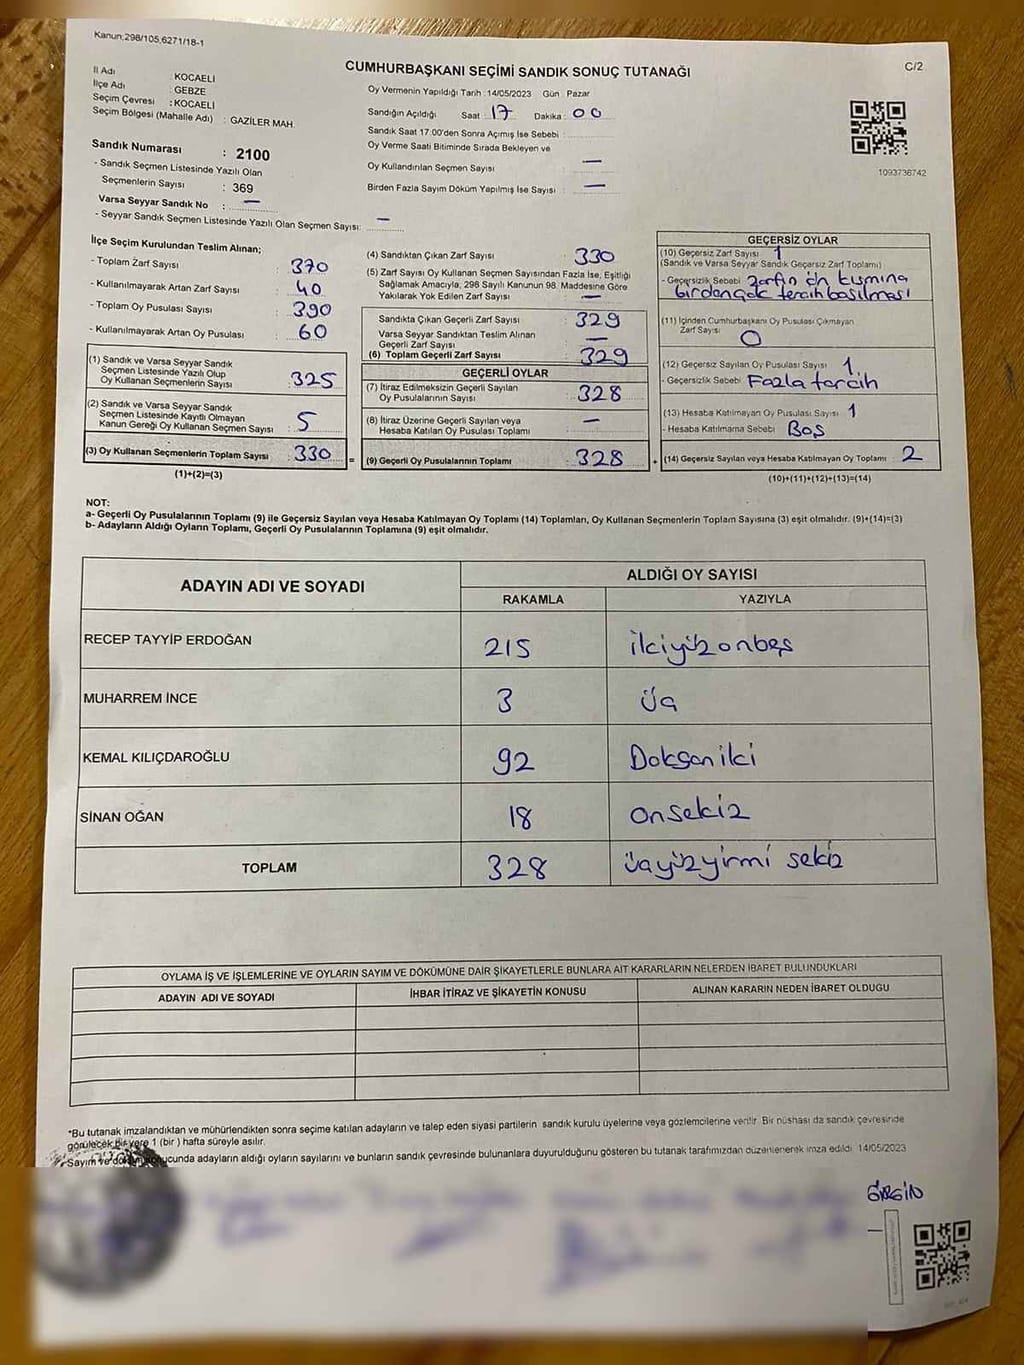 Kanun:298/105,6271/18-1
C/2
CUMHURBAŞKANI SEÇİMİ SANDIK SONUÇ TUTANAĞI
İl Adı : KOCAELİ
İlçe Adı : GEBZE
Seçim Çevresi : KOCAELİ
Seçim Bölgesi (Mahalle Adı) : GAZİLER MAH.
Sandık Numarası : 2100
- Sandık Seçmen Listesinde Yazılı Olan
Seçmenlerin Sayısı : 369
Varsa Seyyar Sandık No : —
- Seyyar Sandık Seçmen Listesinde Yazılı Olan Seçmen Sayısı: —
Oy Vermenin Yapıldığı Tarih :14/05/2023 Gün : Pazar
Sandığın Açıldığı Saat : 17 Dakika : 00
Sandık Saat 17:00'den Sonra Açımış İse Sebebi :
Oy Verme Saati Bitiminde Sırada Bekleyen ve
Oy Kullandırılan Seçmen Sayısı : —
Birden Fazla Sayım Döküm Yapılmış İse Sayısı : —
1093736742
İlçe Seçim Kurulundan Teslim Alınan;
- Toplam Zarf Sayısı : 370
- Kullanılmayarak Artan Zarf Sayısı : 40
- Toplam Oy Pusulası Sayısı : 390
- Kullanılmayarak Artan Oy Pusulası : 60
(1) Sandık ve Varsa Seyyar Sandık
Seçmen Listesinde Yazılı Olup
Oy Kullanan Seçmenlerin Sayısı : 325
(2) Sandık ve Varsa Seyyar Sandık
Seçmen Listesinde Kayıtlı Olmayan
Kanun Gereği Oy Kullanan Seçmen Sayısı : 5
(3) Oy Kullanan Seçmenlerin Toplam Sayısı : 330
(1)+(2)=(3)
(4) Sandıktan Çıkan Zarf Sayısı : 330
(5) Zarf Sayısı Oy Kullanan Seçmen Sayısından Fazla İse, Eşitliği
Sağlamak Amacıyla, 298 Sayılı Kanunun 98. Maddesine Göre
Yakılarak Yok Edilen Zarf Sayısı : —
Sandıkta Çıkan Geçerli Zarf Sayısı : 329
Varsa Seyyar Sandıktan Teslim Alınan
Geçerli Zarf Sayısı : —
(6) Toplam Geçerli Zarf Sayısı : 329
GEÇERLİ OYLAR
(7) İtiraz Edilmeksizin Geçerli Sayılan
Oy Pusulalarının Sayısı : 328
(8) İtiraz Üzerine Geçerli Sayılan veya
Hesaba Katılan Oy Pusulası Toplamı : —
= (9) Geçerli Oy Pusulalarının Toplamı : 328 +
GEÇERSİZ OYLAR
(10) Geçersiz Zarf Sayısı : 1
(Sandık ve Varsa Seyyar Sandık Geçersiz Zarf Toplamı)
- Geçersizlik Sebebi : zarfın ön kısmına
birdençok tercih basılması
(11) İçinden Cumhurbaşkanı Oy Pusulası Çıkmayan
Zarf Sayısı : 0
(12) Geçersiz Sayılan Oy Pusulası Sayısı : 1
- Geçersizlik Sebebi : Fazla tercih
(13) Hesaba Katılmayan Oy Pusulası Sayısı : 1
- Hesaba Katılmama Sebebi : Boş
(14) Geçersiz Sayılan veya Hesaba Katılmayan Oy Toplamı : 2
(10)+(11)+(12)+(13)=(14)
NOT:
a- Geçerli Oy Pusulalarının Toplamı (9) ile Geçersiz Sayılan veya Hesaba Katılmayan Oy Toplamı (14) Toplamları, Oy Kullanan Seçmenlerin Toplam Sayısına (3) eşit olmalıdır. (9)+(14)=(3)
b- Adayların Aldığı Oyların Toplamı, Geçerli Oy Pusulalarının Toplamına (9) eşit olmalıdır.
ADAYIN ADI VE SOYADI
ALDIĞI OY SAYISI
RAKAMLA YAZIYLA
RECEP TAYYİP ERDOĞAN 215 ikiyüzonbeş
MUHARREM İNCE 3 üç
KEMAL KILIÇDAROĞLU 92 Doksaniki
SİNAN OĞAN 18 onsekiz
TOPLAM 328 üçyüzyirmi sekiz
OYLAMA İŞ VE İŞLEMLERİNE VE OYLARIN SAYIM VE DÖKÜMÜNE DAİR ŞİKAYETLERLE BUNLARA AİT KARARLARIN NELERDEN İBARET BULUNDUKLARI
ADAYIN ADI VE SOYADI İHBAR İTİRAZ VE ŞİKAYETİN KONUSU ALINAN KARARIN NEDEN İBARET OLDUĞU
*Bu tutanak imzalandıktan ve mühürlendikten sonra seçime katılan adayların ve talep eden siyasi partilerin sandık kurulu üyelerine veya gözlemcilerine verilir. Bir nüshası da sandık çevresinde
görülecek bir yere 1 (bir ) hafta süreyle asılır.
Sayım ve döküm sonucunda adayların aldığı oyların sayılarını ve bunların sandık çevresinde bulunanlara duyurulduğunu gösteren bu tutanak tarafımızdan düzenlenerek imza edildi. 14/05/2023
GİRGİN